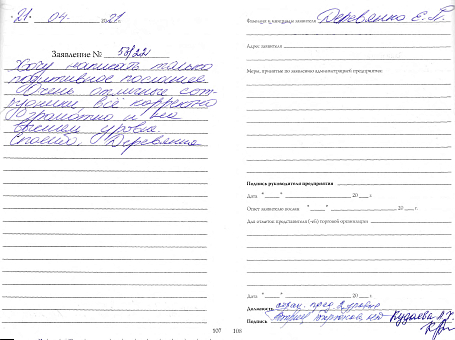 "21" 04 2021 г.
Заявление № 53/22
Хочу написать только
позитивное послание.
Очень отличные сот-
рудники, всё корректно
грамотно и на
высшем уровне.
Спасибо. Деревянко
107
Фамилия и инициалы заявителя Деревянко Е.
Адрес заявителя
Меры, принятые по заявлению администрацией предприятия:
Подпись руководителя предприятия
Дата " " 20 г.
Ответ заявителю послан " " 20 г.
Для отметок представителя (-ей) торговой организации
Дата " " 20 г.
Должность
Подпись Кудаева
108